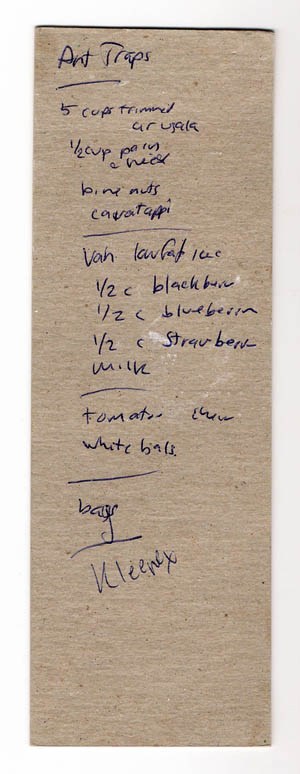 Ant Traps
5 cups trimmed
arugala
1/2 cup parm
pine nuts
cavatappi
Van lowfat ice
1/2 c blackberr
1/2 c blueberr
1/2 c strawberr
milk
tomato
white bals.
bags
Kleenex